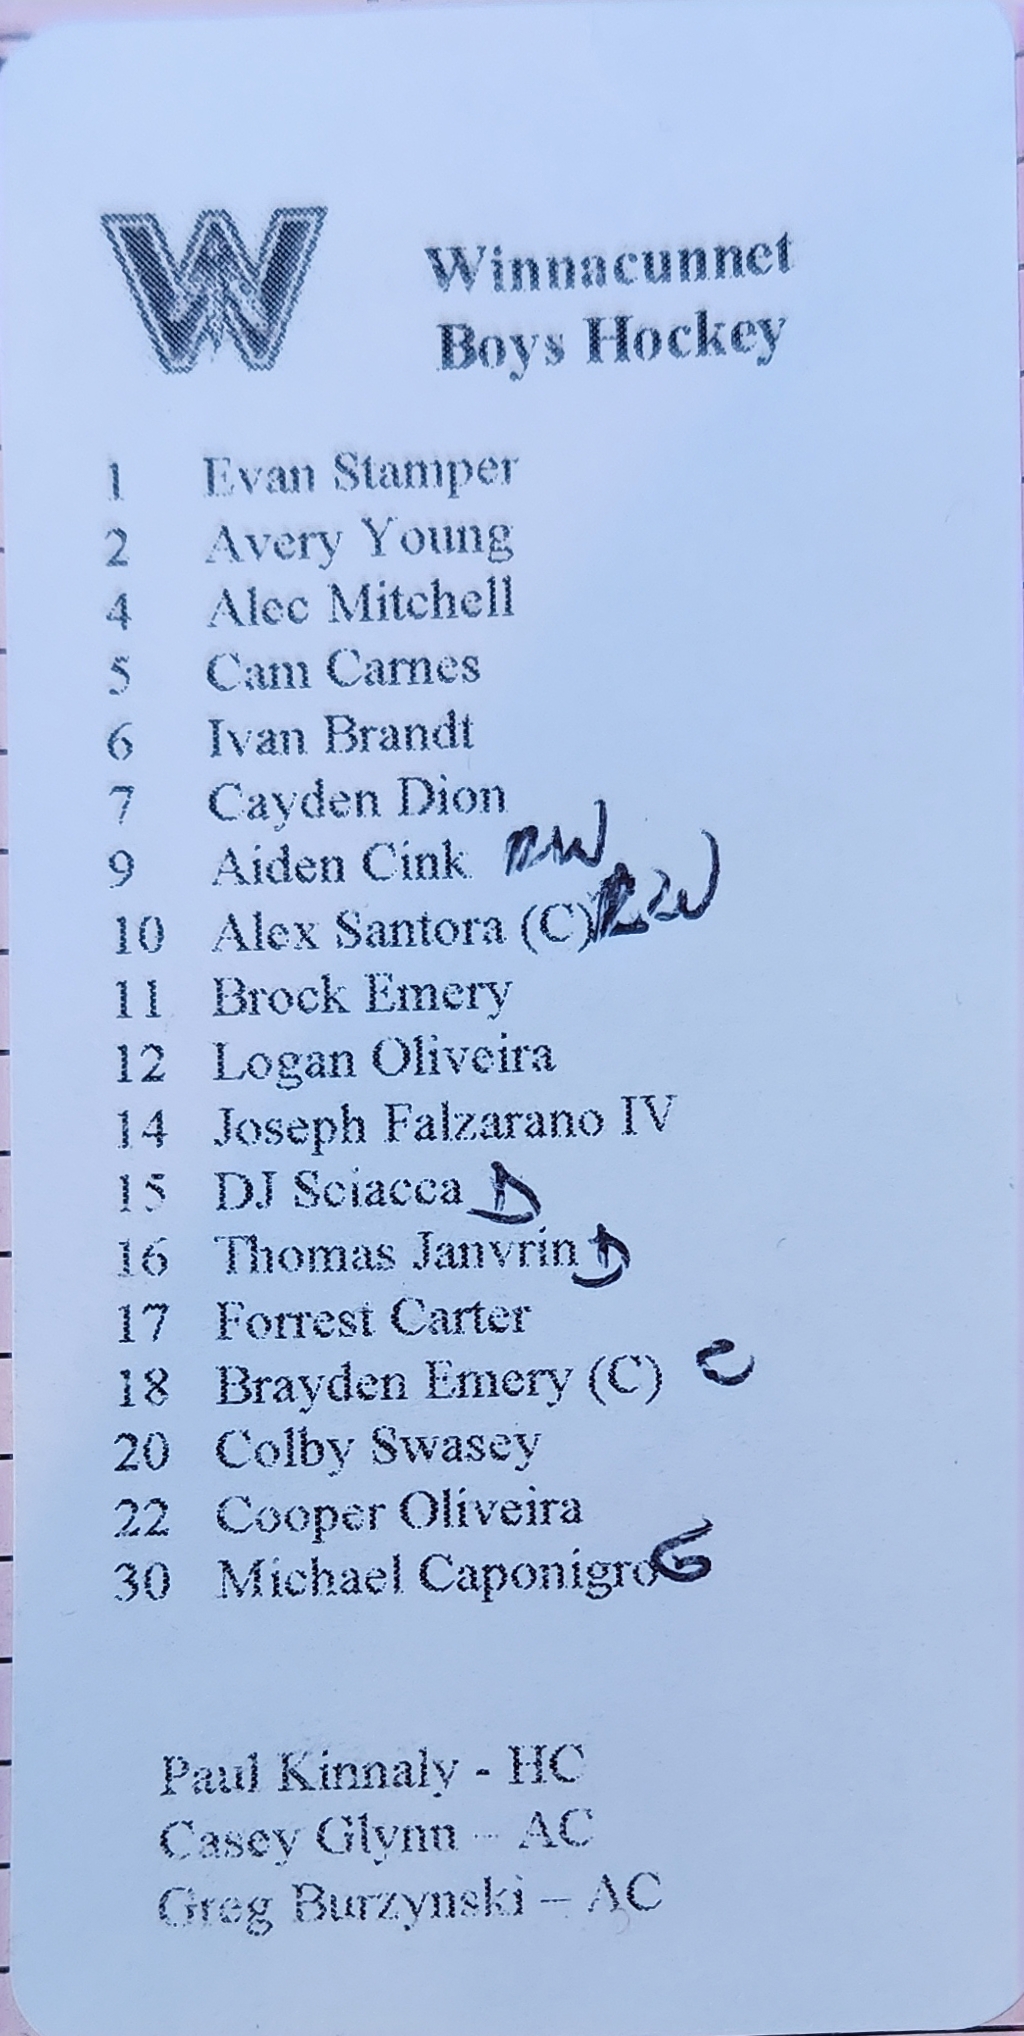 W
Winnacunnet
Boys Hockey
1 Evan Stamper
2 Avery Young
4 Alec Mitchell
5 Cam Carnes
6 Ivan Brandt
7 Cayden Dion
9 Aiden Cink
10 Alex Santora (C)
11 Brock Emery
12 Logan Oliveira
14 Joseph Falzarano IV
15 DJ Sciacca D
16 Thomas Janvrin D
17 Forrest Carter
18 Brayden Emery (C) C
20 Colby Swasey
22 Cooper Oliveira
30 Michael Caponigro G
Paul Kinnaly - HC
Casey Glynn – AC
Greg Burzynski – AC